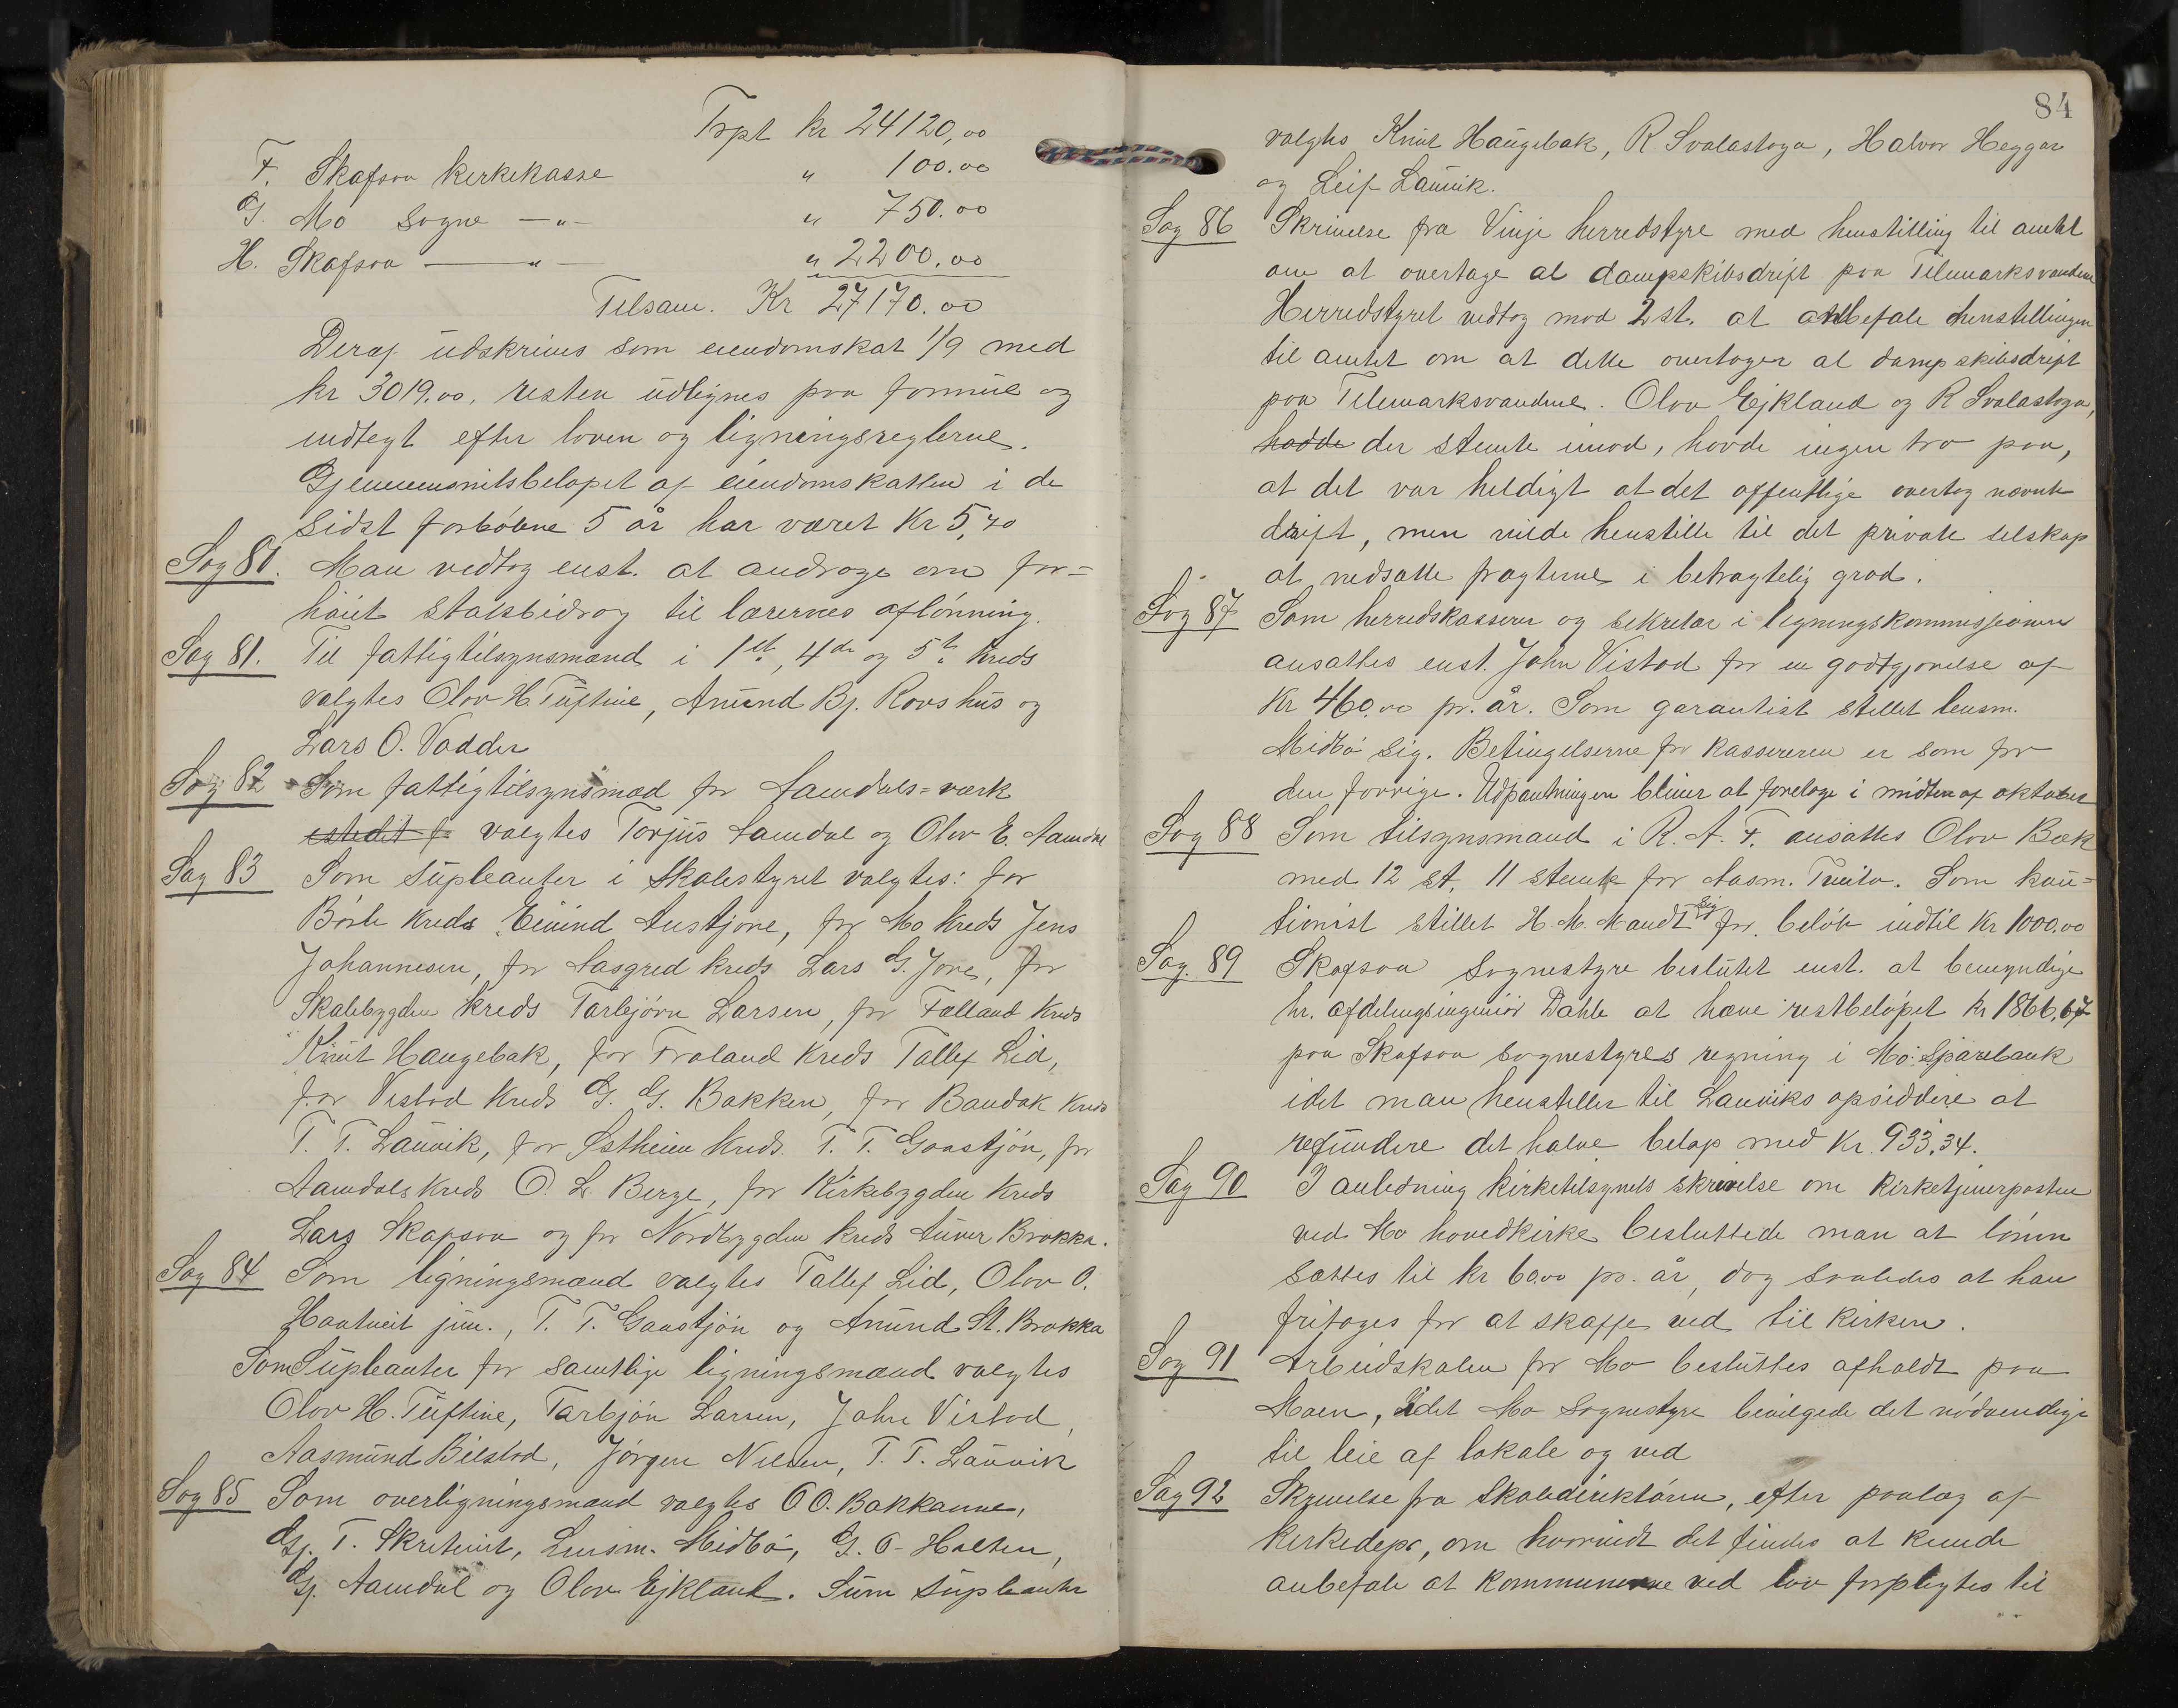 Trpt kr 24120,00
F. Skafsaa kirkekasse " 100.00
G. Mo sogne —"— " 750.00
H. Skafsaa —"— " 2200.00
Tilsam. Kr 27170.00
Deraf udskrives som eiendomskat 1/9 med
kr 3019.00, resten udlignes paa formue og
indtegt efter loven og ligningsreglerne.
Gjennemsnitsbeløpet af eiendomskatten i de
sidst forløbne 5 år har været Kr 5,40
Sag 80. Man vedtog enst. at andrage om for=
høiet statsbidrag til lærernes aflønning.
Sag 81. Til fattigtilsynsmænd i 1st, 4de og 5te kreds
valgtes Olov H. Tuftine, Anund Bj. Rovshus og
Lars O. Vadder
Sag 82 Som fattigtilsynsmæd for Aamdals=værk
valgtes Torjus Aamdal og Olov E. Aamdal
Sag 83 Som supleanter i Skolestyret valgtes: for
Børte kreds Eivind Austjore, for Mo kreds Jens
Johannesen, for Aasgred kreds Lars G. Jore, for
Skalebygden kreds Tarbjørn Larsen, for Folland kreds
Knut Haugebak, for Froland kreds Tallef Lid,
for Vistad kreds G. G. Bakken, for Bandak kreds
T. T. Lauvik, for Østheien kreds T. T. Gaastjøn, for
Aamdals kreds O. L. Berge, for Kirkebygden kreds
Lars Skafsaa og for Nordbygden kreds Auver Brokka.
Sag 84 Som ligningsmænd valgtes Tallef Lid, Olov O.
Haatveit jun., T. T. Gaastjøn og Anund St. Brokka
Som Supleanter for samtlige ligningsmænd valgtes
Olov H. Tuftine, Tarbjøn Larsen, John Vistad,
Aasmund Bilstad, Jørgen Nilsen, T. T. Lauvik
Sag 85 Som overligningsmænd valgtes O O. Bakkanne,
Gj. T. Skreteveit, Lensm. Midbø, G. O. Holten,
Gj. Aamdal og Olov Ejkland. Sum supleanter
84
valgtes Knut Haugebak, R. Svalastoga, Halvor Heggar
og Leif Lauvik.
Sag 86 Skrivelse fra Vinje herredstyre med henstilling til amtet
om at overtage al dampskibsdrift paa Telemarksvandene
Herredstyret vedtog mod 2 st. at anbefale henstillingen
til amtet om at dette overtager al dampskibsdrift
paa Telemarksvandene. Olov Ejkland og R Svalastoga,
hadde der stemte imod, havde ingen tro paa,
at det var heldigt at det offentlige overtog nævnte
drift, men vilde henstille til det private selskap
at nedsætte fragterne i betragtelig grad.
Sag 87 Som herredskasserer og sekretær i ligningskommissjonen
ansattes enst. John Vistad for en godtgjørelse af
Kr 460.00 pr. år. Som garantist stillet lensm.
Midbø sig. Betingelserne for kassereren er som for
den forrige. Udpantningen bliver at foretage i midten af oktober
Sag 88 Som tilsynsmand i R. A. F. ansattes Olov Bæk
med 12 st, 11 stemte for Aasm. Tveito. Som kau=
tionist stillet H. M. Mandt sig for beløb indtil Kr 1000,00
Sag. 89 Skafsaa Sognestyre beslutet enst. at bemyndige
hr. afdelingsingeniør Dahle at hæve restbeløpet kr 1866,67
paa Skafsaa sognestyres regning i Mo Sparebank
idet man henstiller til Lauviks opsiddere at
refundere det halve beløp med Kr. 933,34.
Sag 90 I anledning kirketilsynets skrivelse om kirketjenerposten
ved Mo hovedkirke besluttede man at lønnen
sættes til kr 60.00 pr. år, dog saaledes at han
fritages for at skaffe ved til kirken.
Sag 91 Arbeidskolen for Mo besluttes afholdt paa
Moen, idet Mo sognestyre bevilgede det nødvendige
til leie af lokale og ved
Sag 92 Skrivelse fra Skoledirektøren, efter paalæg af
kirkedepr, om hvorvidt det findes at kunde
anbefale at kommunerne ved lov forpligtes til